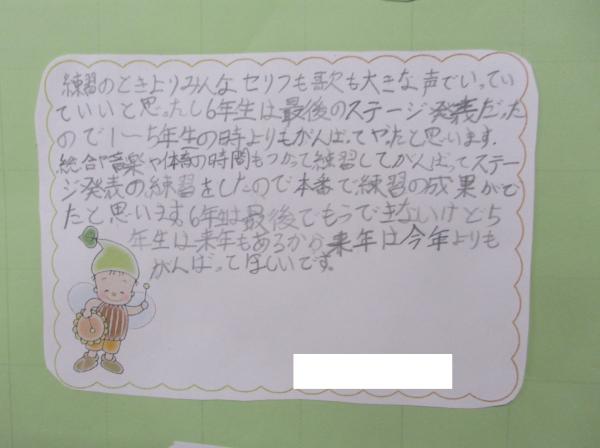 練習のときよりみんなセリフも歌も大きな声でいってい
ていいと思ったし6年生は最後のステージ発表だった
ので1〜5年生の時よりもがんばってやったと思います。
総合や音楽や体育の時間もつかって練習してがんばってステー
ジ発表の練習をしたので本番で練習の成果がで
たと思います。6年生は最後でもうできないけど5
年生は来年もあるから来年は今年よりも
がんばってほしいです。